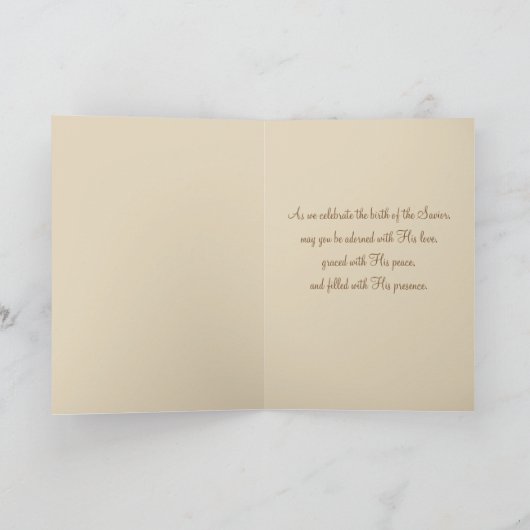 As we celebrate the birth of the Savior,
may you be adorned with His love,
graced with His peace,
and filled with His presence.